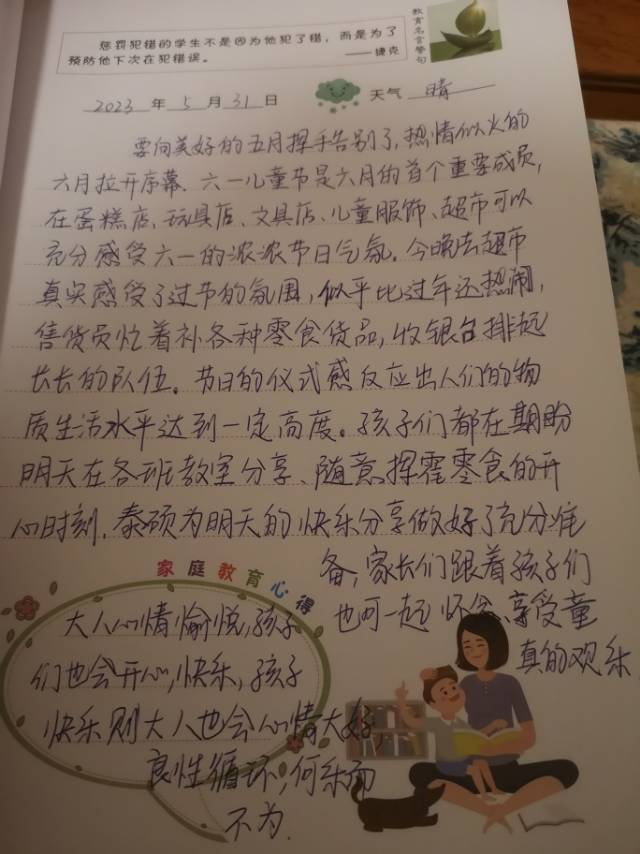 惩罚犯错的学生不是因为他犯了错，而是为了
预防他下次在犯错误。
——捷克
教育名言警句
2023 年 5 月 31 日 天气 晴
要向美好的五月挥手告别了，热情似火的
六月拉开序幕、六一儿童节是六月的首个重要成员，
在蛋糕店、玩具店、文具店、儿童服饰、超市可以
充分感受六一的浓浓节日气氛。今晚去超市
真实感受了过节的氛围，似乎比过年还热闹，
售货员忙着补各种零食货品，收银台排起
长长的队伍。节日的仪式感反应出人们的物
质生活水平达到一定高度。孩子们都在期盼
明天在各班教室分享、随意挥霍零食的开
心时刻，泰硕为明天的快乐分享做好了充分准
备，家长们跟着孩子们
也可一起怀念、享受童
真的观乐
家庭教育心得
大人心情愉悦，孩子
们也会开心，快乐，孩子
快乐则大人也会心情大好，
良性循环，何乐而
不为.